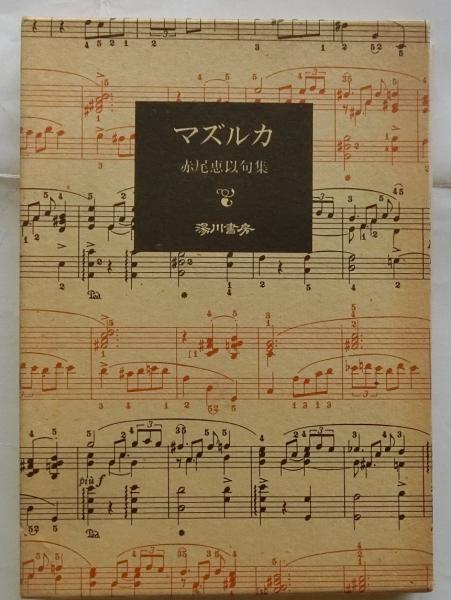 マズルカ
赤尾恵以句集
湯川書房
più f